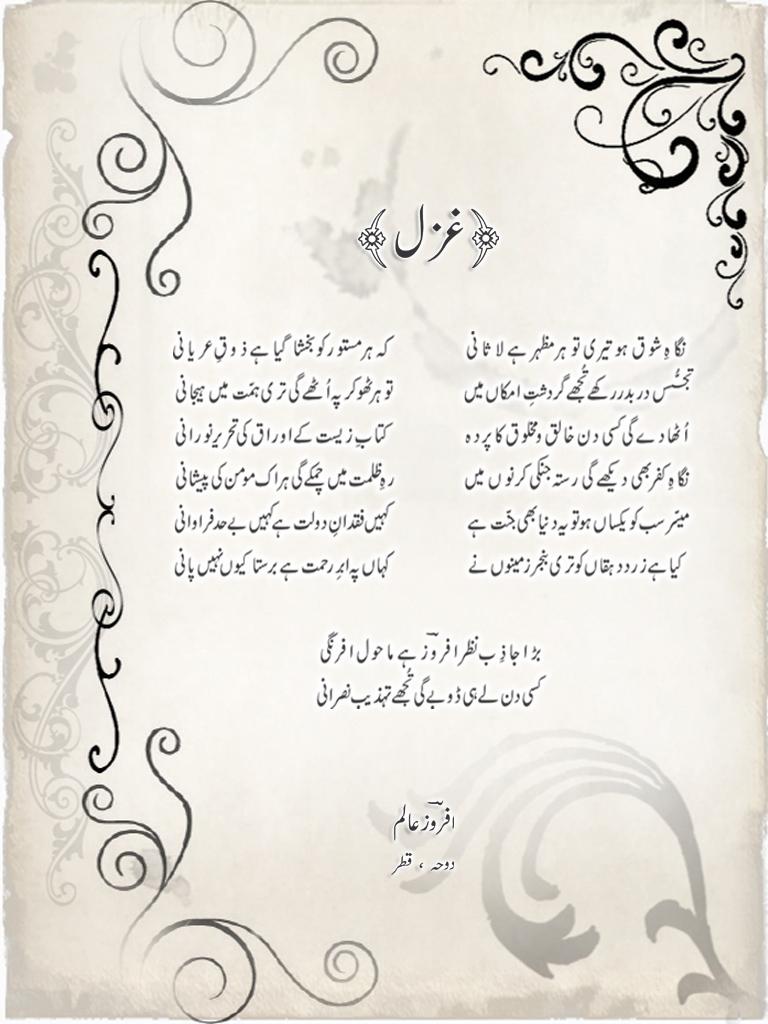 غزل
نگاہِ شوق ہو تیری تو ہر مظہر ہے لا ثانی
کہ ہر مستور کو بخشا گیا ہے ذوقِ عریانی
تجسُّس در بدر رکھے تُجھے گردشتِ امکاں میں
تو ہر ٹھوکر پہ اُٹھے گی تری ہمّت میں ہیجانی
اُٹھا دے گی کسی دن خالق و مخلوق کا پردہ
کتابِ زیست کے اوراق کی تحریر نورانی
نگاہِ کفر بھی دیکھے گی رستہ جنکی کرنوں میں
رہِ ظلمت میں چمکے گی ہر اک مومن کی پیشانی
میسّر سب کو یکساں ہو تو یہ دنیا بھی جنّت ہے
کہیں فقدانِ دولت ہے کہیں بے حد فراوانی
کیا ہے زرد دہقاں کو تری بنجر زمینوں نے
کہاں پہ ابرِ رحمت ہے برستا کیوں نہیں پانی
بڑا جاذِبِ نظر افروزؔ ہے ماحول افرنگی
کسی دن لے ہی ڈوبے گی تُجھے تہذیب نصرانی
افروزؔ عالم
دوحہ ، قطر